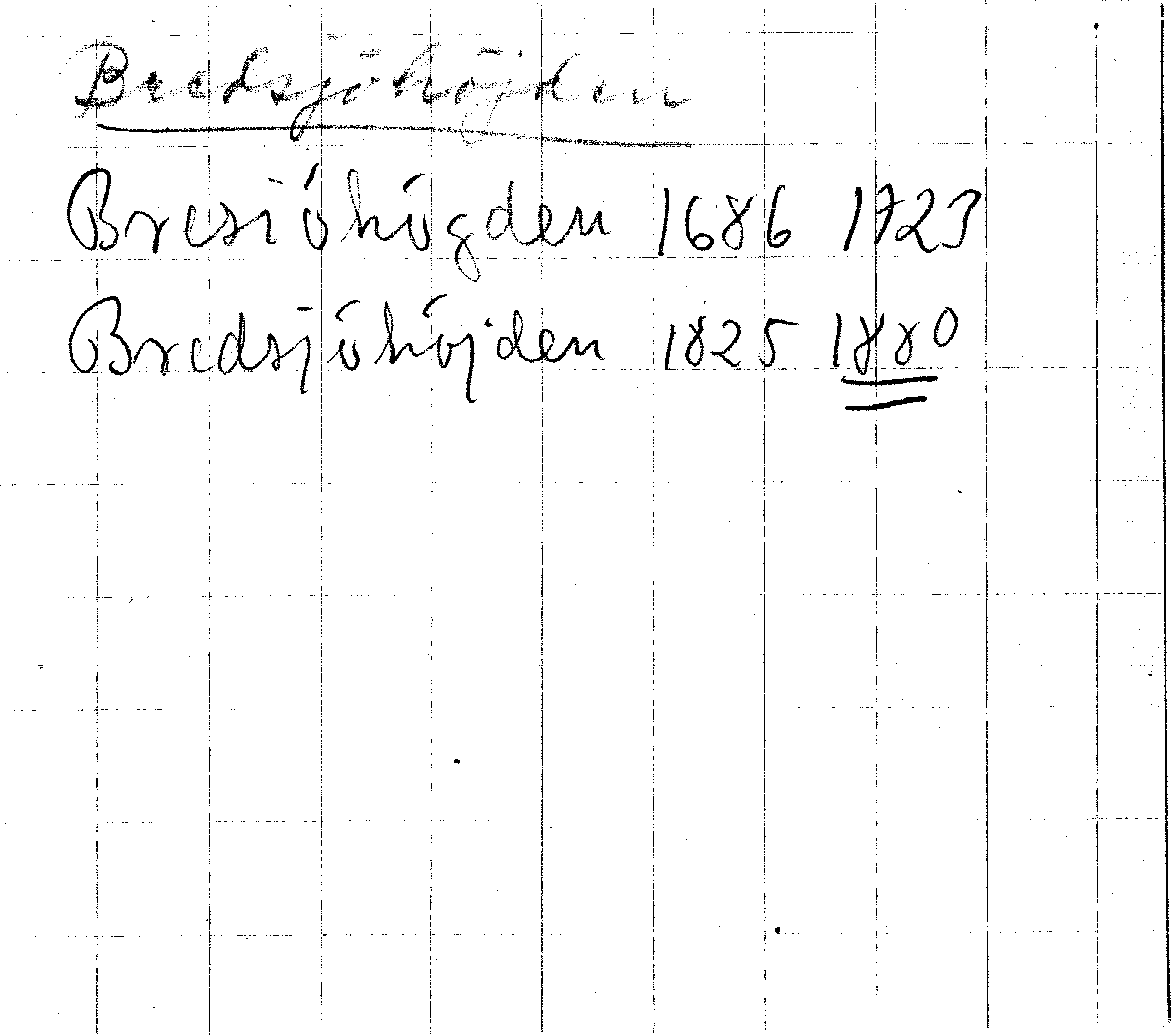 Bredsjöhöjden
Bresiöhögden 1686 1723
Bredsjöhöjden 1825 1880